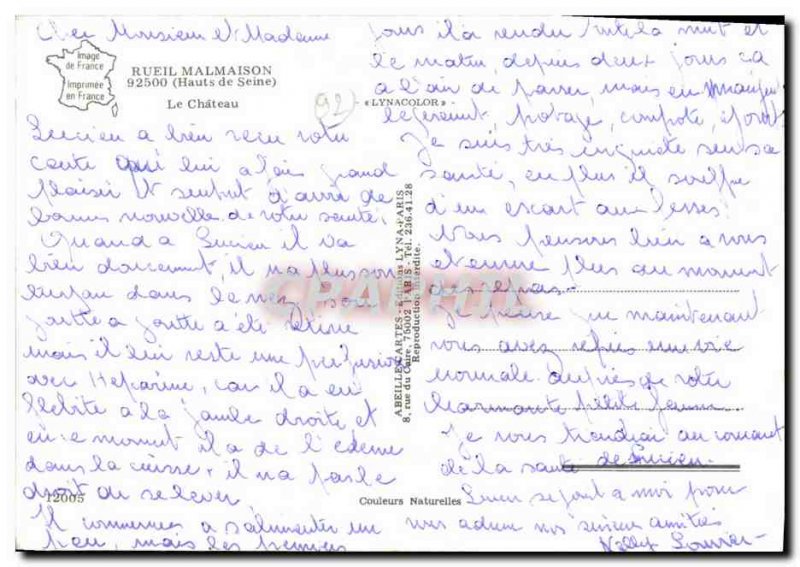 Cher Monsieur et Madame
Image
de France
Imprimée
en France
RUEIL MALMAISON
92500 (Hauts de Seine)
Le Château
92
- « LYNACOLOR » -
Lucien a bien recu votre
carte qui lui a fais grand
plaisir et surtout d'avoir de
bonnes nouvelle de votre santé.
Quand a Lucien il va
bien doucement, il n'a plus son
tuyau dans le nez, son
goutte a goutte a été retiré
mais il lui reste une perfusion
avec Heparine, car il a eu
flebite a la jambe droite, et
en ce moment il a de l'edeme
dans la cuisse, il n'a pas le
droit de se lever
12005
Il commence a s'alimenter un
peu, mais les premiers
ABEILLE-CARTES - Editions LYNA-PARIS
8, rue du Caire, 75002 PARIS - Tél. 236.41.28
Reproduction interdite.
CPAPHIL
Couleurs Naturelles
jours il a rendu toute la nuit et
le matin, depuis deux jours ca
a l'air de passer, mais en mangeant
legerement, potage, compote, yaourt
Je suis très inquiete sur sa
santé, en plus il souffre
d'un escart aux fesses.
Nous pensons bien a vous
et encore plus au moment
des repas.
Je pense que maintenant
vous avez repris une vie
normale auprès de votre
charmante petite femme
Je vous tiendrai au courant
de la santé de Lucien.
Lucien se joint a moi pour
vous adresser nos sincères amitiés
Nelly